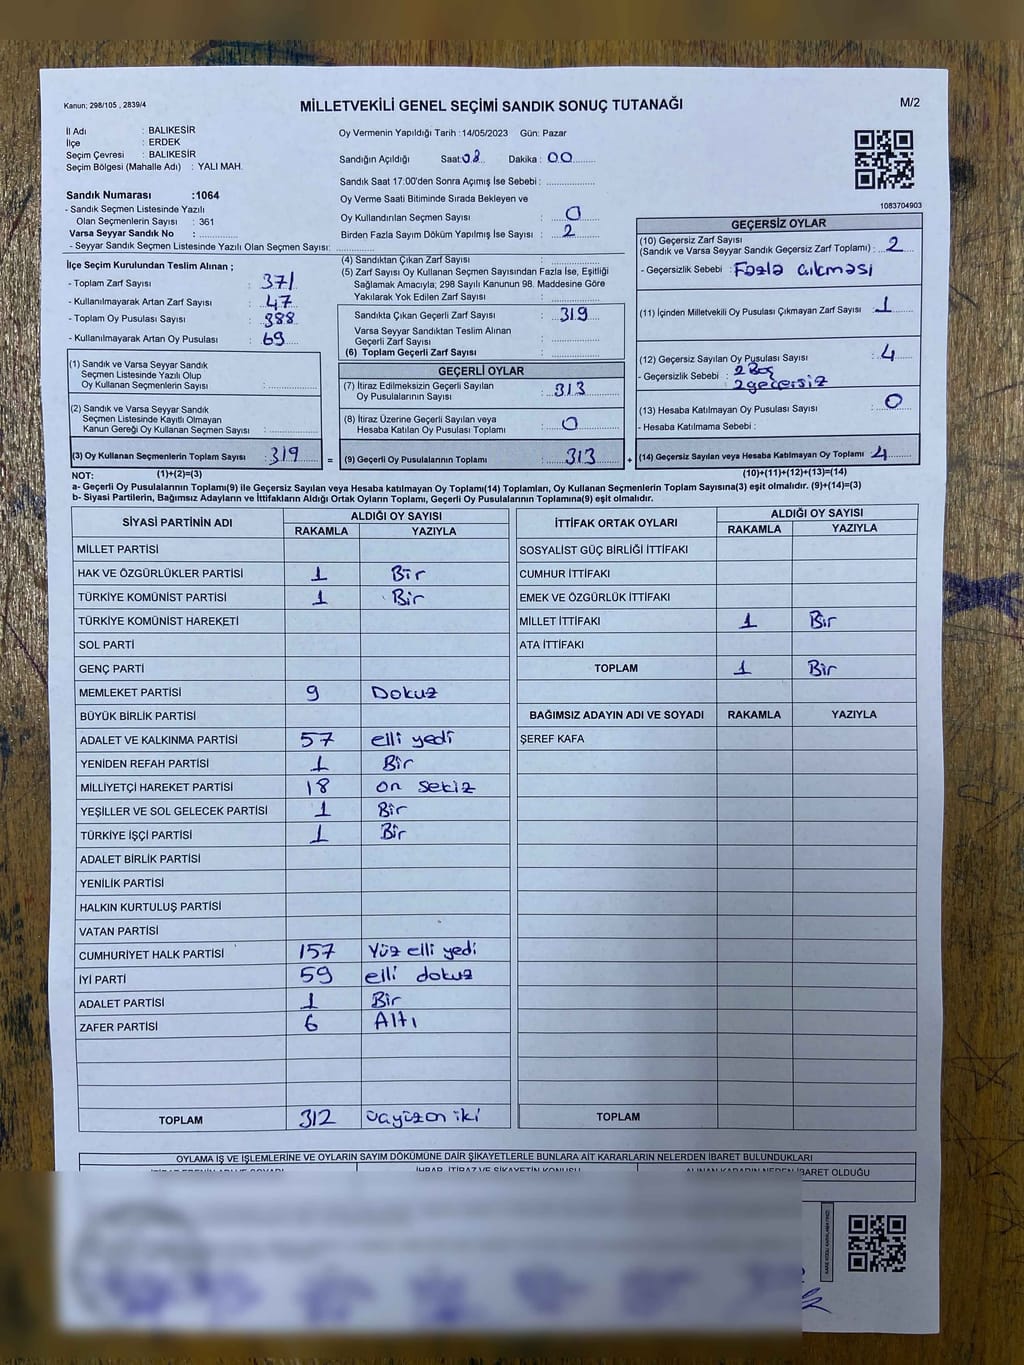 Kanun; 298/105 , 2839/4
MİLLETVEKİLİ GENEL SEÇİMİ SANDIK SONUÇ TUTANAĞI
M/2
İl Adı : BALIKESİR
İlçe : ERDEK
Seçim Çevresi : BALIKESİR
Seçim Bölgesi (Mahalle Adı) : YALI MAH.
Oy Vermenin Yapıldığı Tarih :14/05/2023 Gün: Pazar
Sandığın Açıldığı Saat:08 Dakika : 00
Sandık Saat 17:00'den Sonra Açımış İse Sebebi :
Oy Verme Saati Bitiminde Sırada Bekleyen ve
Oy Kullandırılan Seçmen Sayısı : 0
Birden Fazla Sayım Döküm Yapılmış İse Sayısı : 2
Sandık Numarası :1064
- Sandık Seçmen Listesinde Yazılı
Olan Seçmenlerin Sayısı : 361
Varsa Seyyar Sandık No :
- Seyyar Sandık Seçmen Listesinde Yazılı Olan Seçmen Sayısı:
1083704903
İlçe Seçim Kurulundan Teslim Alınan ;
- Toplam Zarf Sayısı : 371
- Kullanılmayarak Artan Zarf Sayısı : 47
- Toplam Oy Pusulası Sayısı : 388
- Kullanılmayarak Artan Oy Pusulası : 69
(1) Sandık ve Varsa Seyyar Sandık
Seçmen Listesinde Yazılı Olup
Oy Kullanan Seçmenlerin Sayısı :
(2) Sandık ve Varsa Seyyar Sandık
Seçmen Listesinde Kayıtlı Olmayan
Kanun Gereği Oy Kullanan Seçmen Sayısı :
(3) Oy Kullanan Seçmenlerin Toplam Sayısı : 319 =
(4) Sandıktan Çıkan Zarf Sayısı :
(5) Zarf Sayısı Oy Kullanan Seçmen Sayısından Fazla İse, Eşitliği
Sağlamak Amacıyla; 298 Sayılı Kanunun 98. Maddesine Göre
Yakılarak Yok Edilen Zarf Sayısı :
Sandıkta Çıkan Geçerli Zarf Sayısı : 319
Varsa Seyyar Sandıktan Teslim Alınan
Geçerli Zarf Sayısı :
(6) Toplam Geçerli Zarf Sayısı :
GEÇERLİ OYLAR
(7) İtiraz Edilmeksizin Geçerli Sayılan
Oy Pusulalarının Sayısı : 313
(8) İtiraz Üzerine Geçerli Sayılan veya
Hesaba Katılan Oy Pusulası Toplamı : 0
(9) Geçerli Oy Pusulalarının Toplamı : 313 +
GEÇERSİZ OYLAR
(10) Geçersiz Zarf Sayısı
(Sandık ve Varsa Seyyar Sandık Geçersiz Zarf Toplamı) : 2
- Geçersizlik Sebebi : Fazla çıkması
(11) İçinden Milletvekili Oy Pusulası Çıkmayan Zarf Sayısı : 1
(12) Geçersiz Sayılan Oy Pusulası Sayısı : 4
- Geçersizlik Sebebi : 2 Boş
2 geçersiz
(13) Hesaba Katılmayan Oy Pusulası Sayısı : 0
- Hesaba Katılmama Sebebi :
(14) Geçersiz Sayılan veya Hesaba Katılmayan Oy Toplamı : 4
NOT: (1)+(2)=(3) (10)+(11)+(12)+(13)=(14)
a- Geçerli Oy Pusulalarının Toplamı(9) ile Geçersiz Sayılan veya Hesaba katılmayan Oy Toplamı(14) Toplamları, Oy Kullanan Seçmenlerin Toplam Sayısına(3) eşit olmalıdır. (9)+(14)=(3)
b- Siyasi Partilerin, Bağımsız Adayların ve İttifakların Aldığı Ortak Oyların Toplamı, Geçerli Oy Pusulalarının Toplamına(9) eşit olmalıdır.
SİYASİ PARTİNİN ADI ALDIĞI OY SAYISI
RAKAMLA YAZIYLA
MİLLET PARTİSİ
HAK VE ÖZGÜRLÜKLER PARTİSİ 1 Bir
TÜRKİYE KOMÜNİST PARTİSİ 1 Bir
TÜRKİYE KOMÜNİST HAREKETİ
SOL PARTİ
GENÇ PARTİ
MEMLEKET PARTİSİ 9 Dokuz
BÜYÜK BİRLİK PARTİSİ
ADALET VE KALKINMA PARTİSİ 57 elli yedi
YENİDEN REFAH PARTİSİ 1 Bir
MİLLİYETÇİ HAREKET PARTİSİ 18 on sekiz
YEŞİLLER VE SOL GELECEK PARTİSİ 1 Bir
TÜRKİYE İŞÇİ PARTİSİ 1 Bir
ADALET BİRLİK PARTİSİ
YENİLİK PARTİSİ
HALKIN KURTULUŞ PARTİSİ
VATAN PARTİSİ
CUMHURİYET HALK PARTİSİ 157 Yüz elli yedi
İYİ PARTİ 59 elli dokuz
ADALET PARTİSİ 1 Bir
ZAFER PARTİSİ 6 Altı
TOPLAM 312 üçyüzon iki
İTTİFAK ORTAK OYLARI ALDIĞI OY SAYISI
RAKAMLA YAZIYLA
SOSYALİST GÜÇ BİRLİĞİ İTTİFAKI
CUMHUR İTTİFAKI
EMEK VE ÖZGÜRLÜK İTTİFAKI
MİLLET İTTİFAKI 1 Bir
ATA İTTİFAKI
TOPLAM 1 Bir
BAĞIMSIZ ADAYIN ADI VE SOYADI RAKAMLA YAZIYLA
ŞEREF KAFA
TOPLAM
OYLAMA İŞ VE İŞLEMLERİNE VE OYLARIN SAYIM DÖKÜMÜNE DAİR ŞİKAYETLERLE BUNLARA AİT KARARLARIN NELERDEN İBARET BULUNDUKLARI
İHBAR, İTİRAZ VE ŞİKAYETİN KONUSU ALINAN KARARIN NEDEN İBARET OLDUĞU